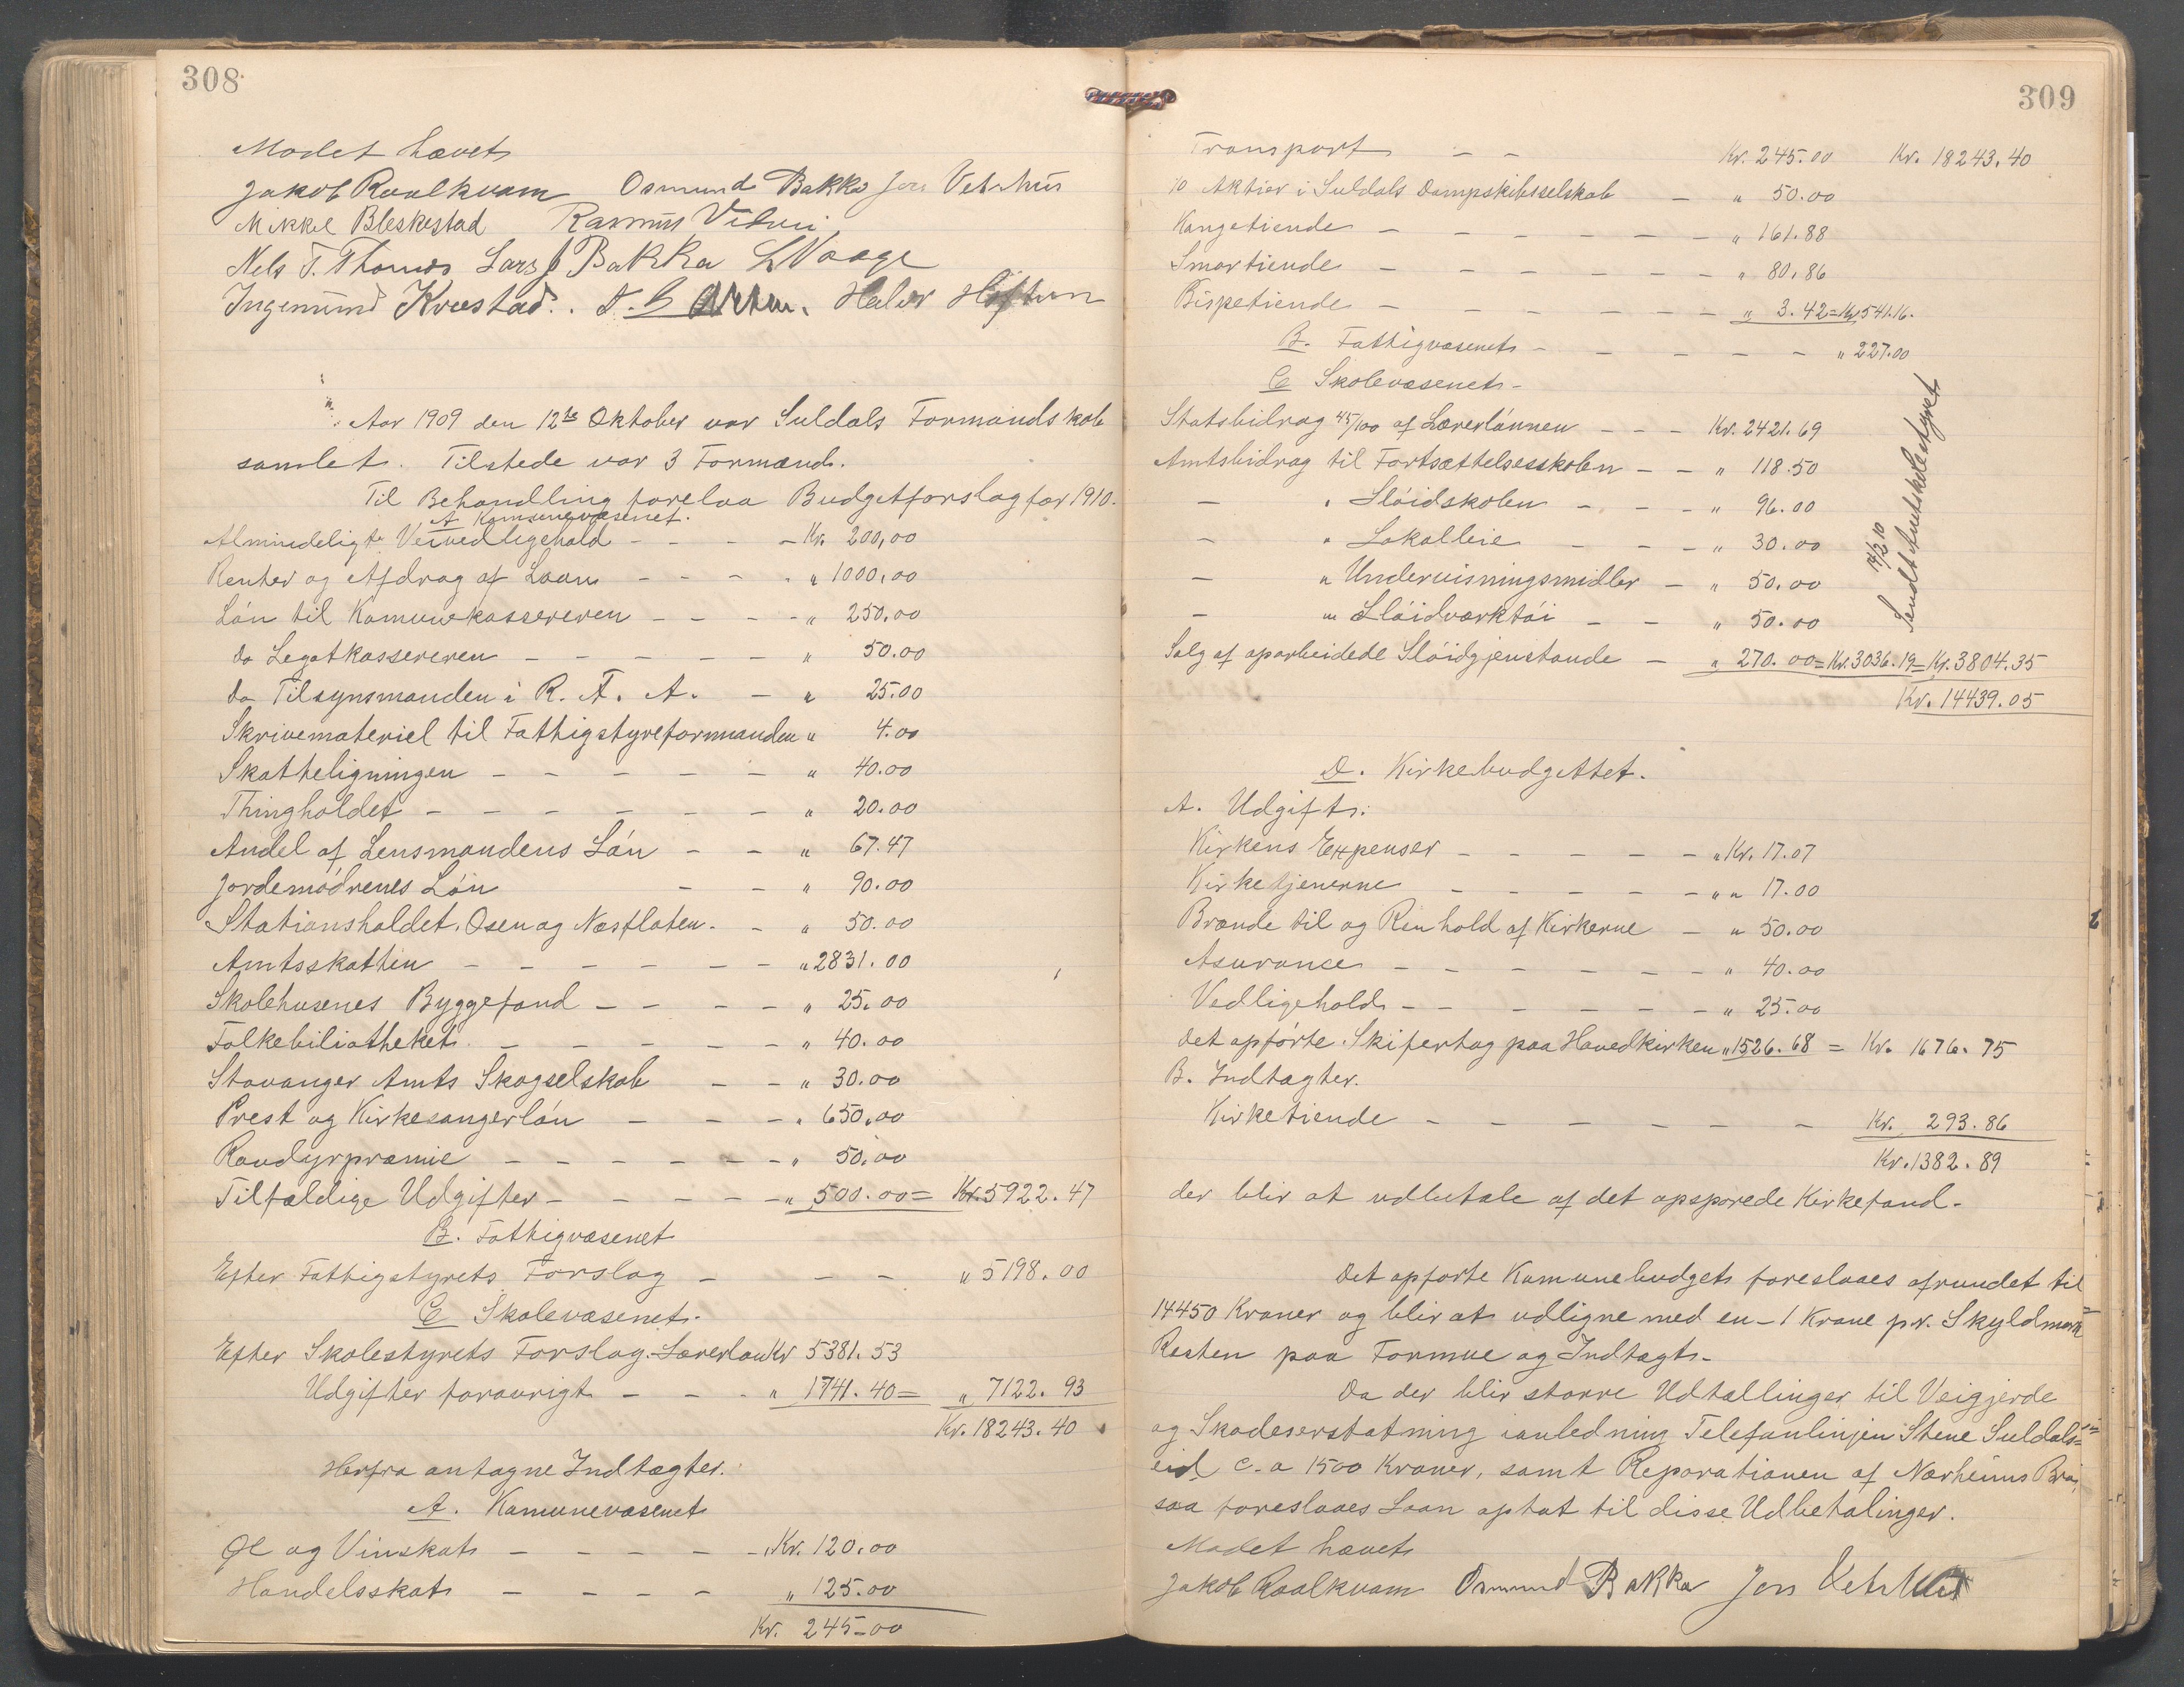 308
Mødet hævet
Jakob Roalkvam Osmund Bakka Jon Vetrhus
Mikkel Bleskestad Rasmus
Nels T. Thomas Lars J Bakka L Vaage
Ingemund Kvæstad. Halvor
Aar 1909 den 12te Oktober var Suldals Formandskab
samlet. Tilstede var 3 Formænd.
Til Behandling forelaa Budgetforslag for 1910.
A Komunevæsenet.
Almindeligt Veivedligehold - - - - Kr. 200,00
Renter og Afdrag af Laan - - - - " 1000,00
Løn til Komunekassereren - - - - " 250,00
do Legatkassereren - - - - - " 50.00
do Tilsynsmanden i R. F. A. - " 25.00
Skrivemateriel til Fattigstyreformanden " 4.00
Skatteligningen - - - - - " 40.00
Thingholdet - - - - - - " 20.00
Andel af Lensmandens Løn - - " 67.47
Jordemødrenes Løn - - " 90.00
Stationsholdet. Osen og Næsflaten. - " 50.00
Amtsskatten - - - - - - " 2831.00
Skolehusenes Byggefond - - - - " 25.00
Folkebiliotheket. - - - - - " 40.00
Stavanger Amts Skogselskab - - " 30.00
Prest og Kirkesangerløn - - - " 650,00
Rovdyrpræmie - - - - - - " 50,00
Tilfældige Udgifter - - - - - " 500.00 = Kr. 5922.47
B. Fattigvæsenet
Efter Fattigstyrets Forslag - - - " 5198.00
C Skolevæsenet.
Efter Skolestyrets Forslag. Lærerløn Kr 5381.53
Udgifter forøvrigt - - - " 1741.40 = " 7122.93
Kr. 18243.40
Herfra antagne Indtægter.
A. Komunevæsenet
Øl og Vinskat - - - - - Kr. 120.00
Handelsskat - - - - " 125.00
Kr. 245-00
309
Transport - - Kr. 245.00 Kr. 18243.40
10 Aktier i Suldals Dampskibsselskab - " 50.00
Kongetiende - - - - - - " 161.88
Smørtiende - - - - - - " 80,86
Bispetiende - - - - - - " 3.42 = Kr 541.16.
B. Fattigvæsenet - - - - - " 227.00
C Skolevæsenet -
Statsbidrag 45/100 af Lærerlønnen - - - Kr. 2421.69
Amtsbidrag til Fortsættelsesskolen - - " 118.50
- " Sløidskolen - - - " 96.00
- " Lokalleie - - - " 30.00
- " Undervisningsmidler - " 50.00
- " Sløidværktøi - - " 50.00
Salg af oparbeidede Sløidgjenstande - " 270.00 = Kr. 3036.19 = Kr. 3804.35
Kr. 14439.05
14/2 10
Sendt Amtskolestyret
D. Kirkebudgettet.
A. Udgift:
Kirkens Expenser - - - - - " Kr. 17.07
Kirketjenerne - - - - - " " 17.00
Brænde til og Renhold af Kirkerne - " 50.00
Asurance - - - - - - " 40.00
Vedligehold - - - - - - " 25.00
det opførte Skifertag paa Hovedkirken " 1526.68 = Kr. 1676.75
B. Indtægter.
Kirketiende - - - - - - Kr. 293.86
Kr. 1382.89
der blir at udbetale af det opsparede Kirkefond.
Det opførte Komunebudget foreslaaes afrundet til
14450 Kroner og blir at udligne med en - 1 Krone pr. Skyldmark
Resten paa Formue og Indtægt -
Da der blir større Udtællinger til Veigjerde
og Skadeserstatning ianledning Telefonlinjen Stene Suldals=
eid c-a 1500 Kroner, samt Reparationen af Nærheims Bro,
saa foreslaaes Laan optat til disse Udbetalinger.
Mødet hævet
Jakob Roalkvam Osmund Bakka Jon Vetrhus